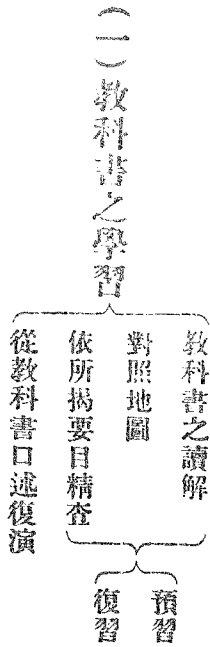 （一）教科書之學習
教科書之讀解
對照地圖
依所揭要目精查
從教科書口述復演
預習
復習